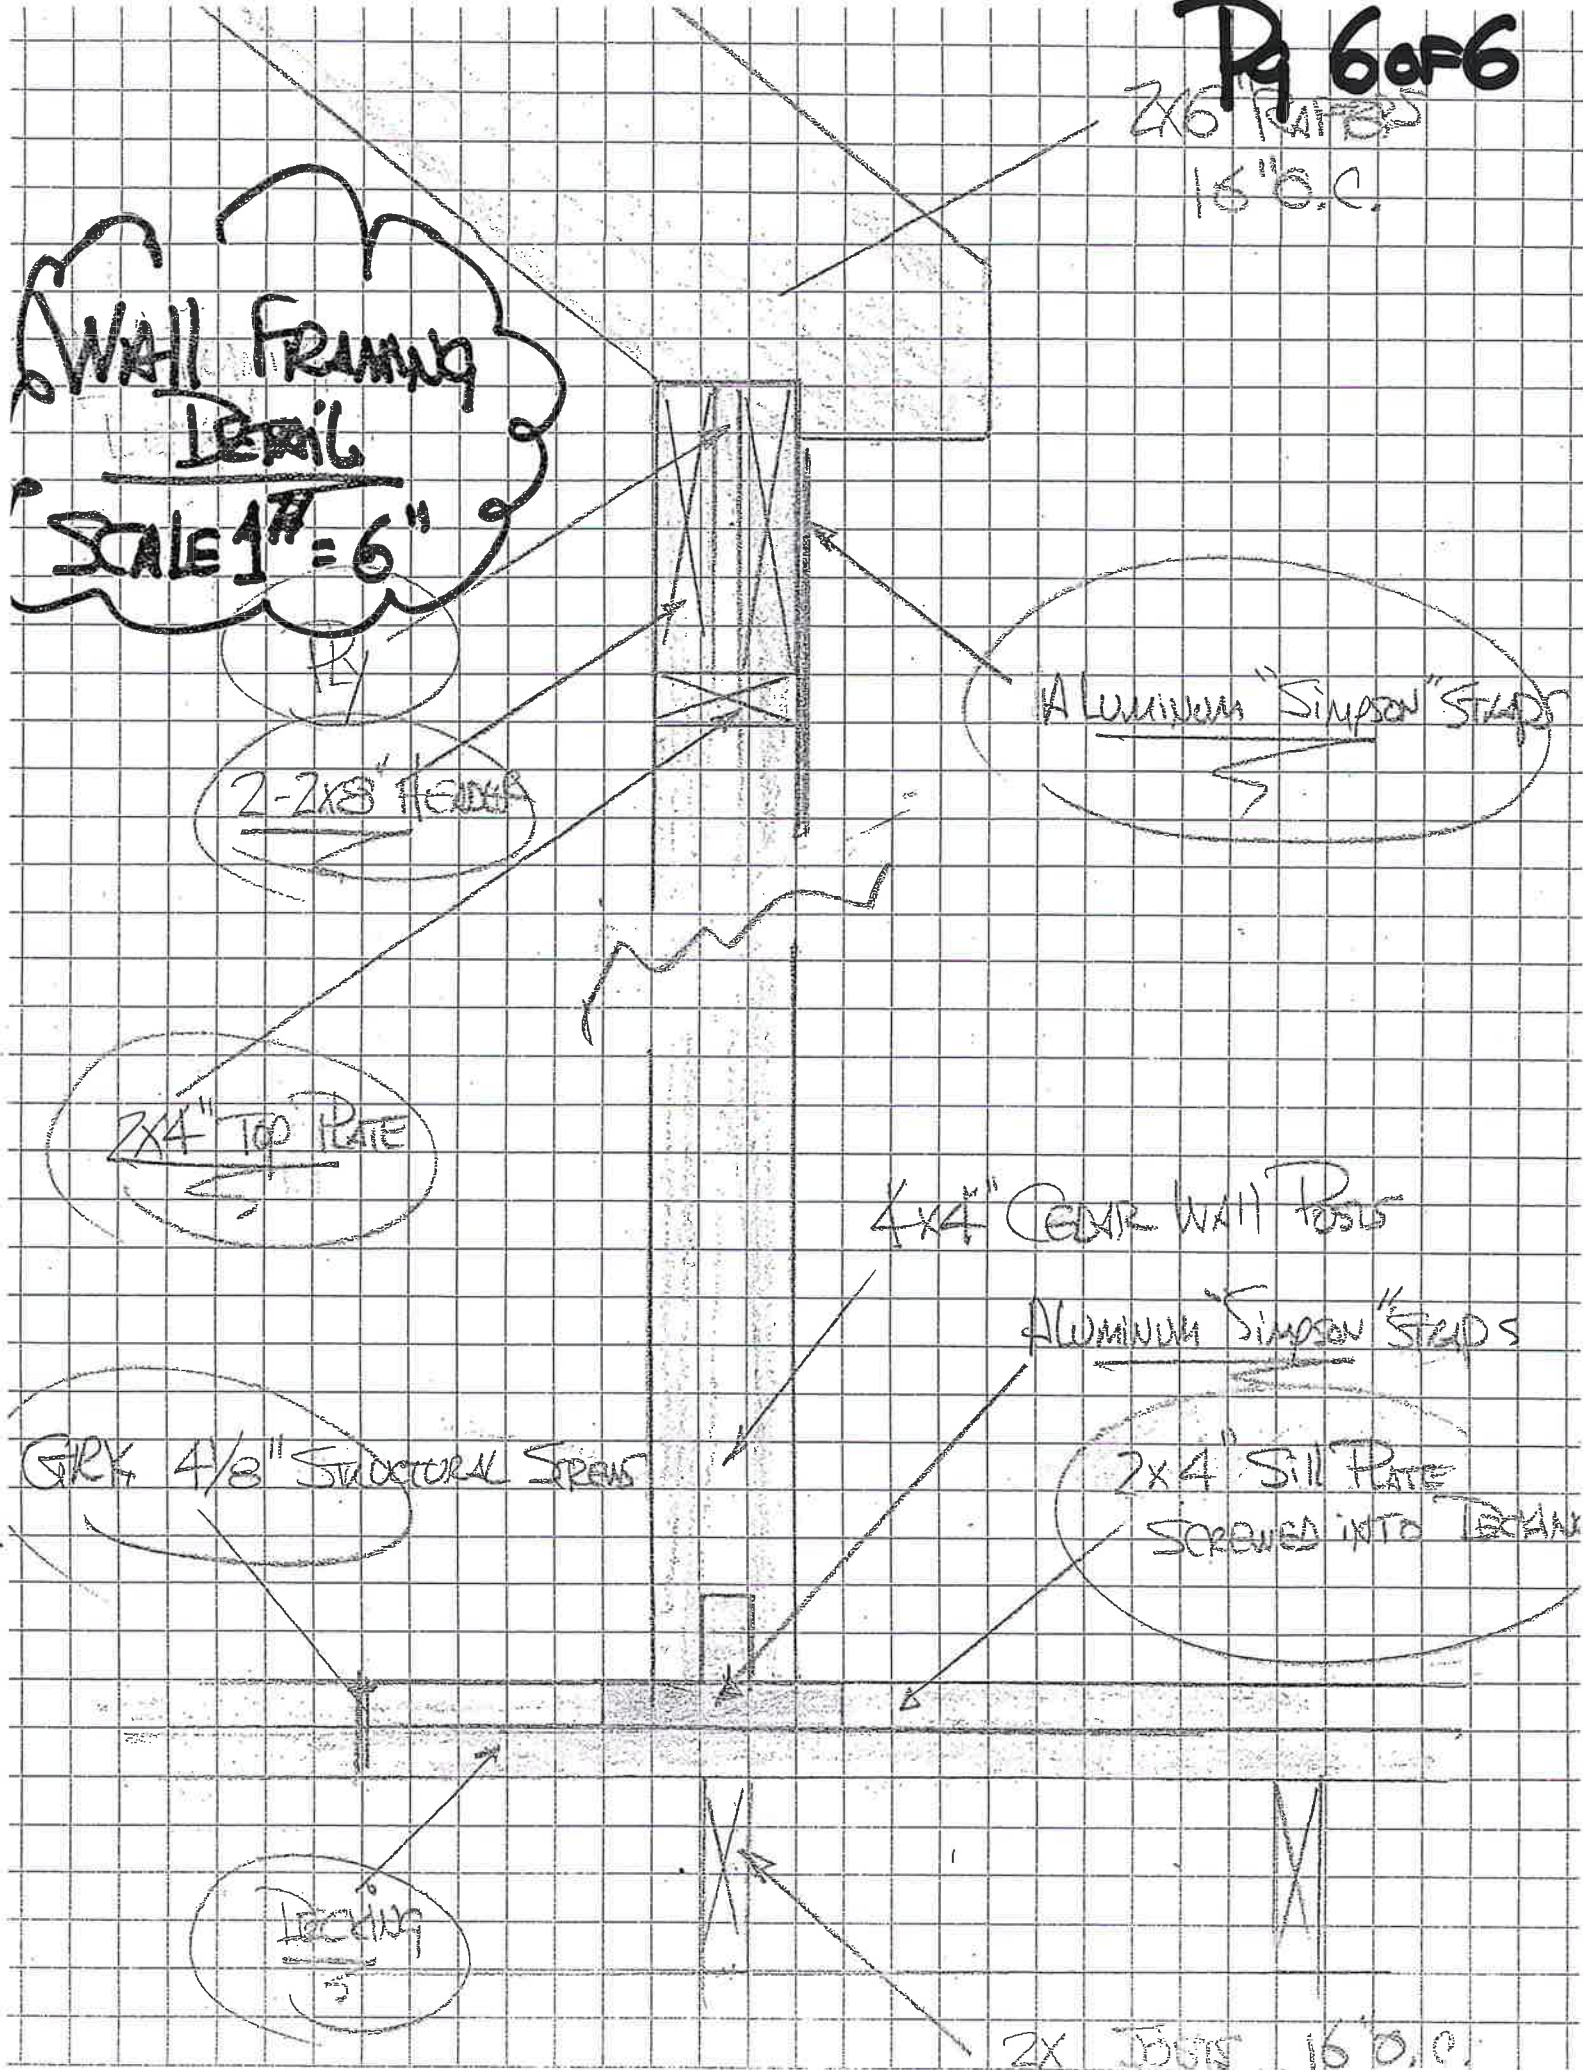 Pg 6 of 6
2x6" RAFTERS
16" O.C.
WAll FRAMING
DETAIL
SCALE 1" = 6"
PLY
ALUMINUM "SIMPSON" STRAPS
2-2x8" HEADER
2x4" TOP PLATE
4x4" CEDAR WAll POSTS
ALUMINUM "SIMPSON" STRAPS
GRK 4 1/8" STRUCTURAL SCREWS
2x4" Sill PLATE
SCREWED INTO
DECKING
2X JOISTS 16" O.C.